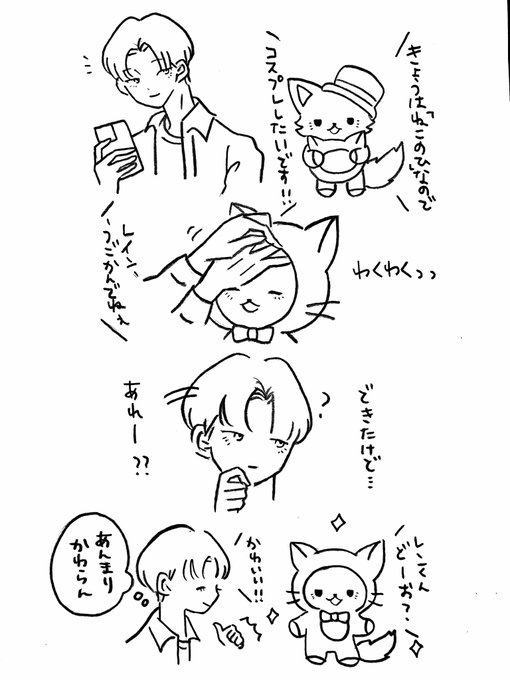 きょうは「ねこのひ」なので
コスプレしたいです!!
わくわくっっ
レイン、
うごかんでねぇ
できたけど…
?
あれー??
レンくん
どーお?
かわいい!!
あんまり
かわらん